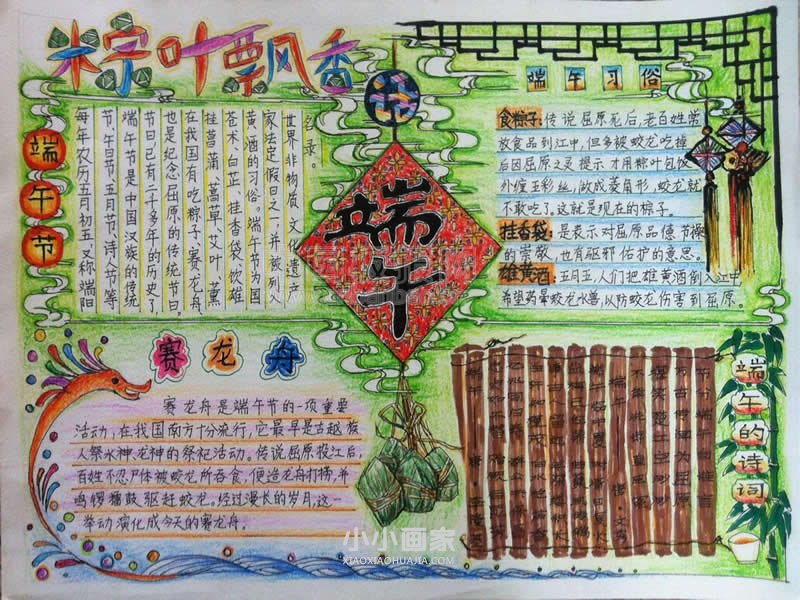 粽叶飘香
端午节
每年农历五月初五,又称端阳
节、午日节、五月节、诗人节等
端午节是中国汉族的传统
节日,已有二千多年的历史了,
也是纪念屈原的传统节日。
在我国有吃粽子、赛龙舟、
挂菖蒲、蒿草、艾叶、薰
苍术、白芷、挂香袋、饮雄
黄酒的习俗。端午节为国
家法定假日之一,并被列入
世界非物质文化遗产
名录。
端午
端午习俗
食粽子:传说屈原死后,老百姓常
放食品到江中,但多被蛟龙吃掉
后因屈原之灵提示才用粽叶包饭
外缠五彩丝,做成菱角形,蛟龙就
不敢吃了。这就是现在的粽子。
挂香袋:是表示对屈原品德节操
的崇敬,也有驱邪佑护的意思。
雄黄酒:五月五,人们把雄黄酒倒入江中
希望药晕蛟龙水兽,以防蛟龙伤害到屈原。
赛龙舟
赛龙舟是端午节的一项重要
活动,在我国南方十分流行,它最早是古越族
人祭水神龙神的祭祀活动。传说屈原投江后,
百姓不忍尸体被蛟龙所吞食,便造龙舟打捞,并
鸣锣擂鼓驱赶蛟龙。经过漫长的岁月,这一
举动演化成今天的赛龙舟。
端午的诗词
节分端午自谁言
万古传闻为屈原
小小画家
XIAOXIAOHUAJIA.COM